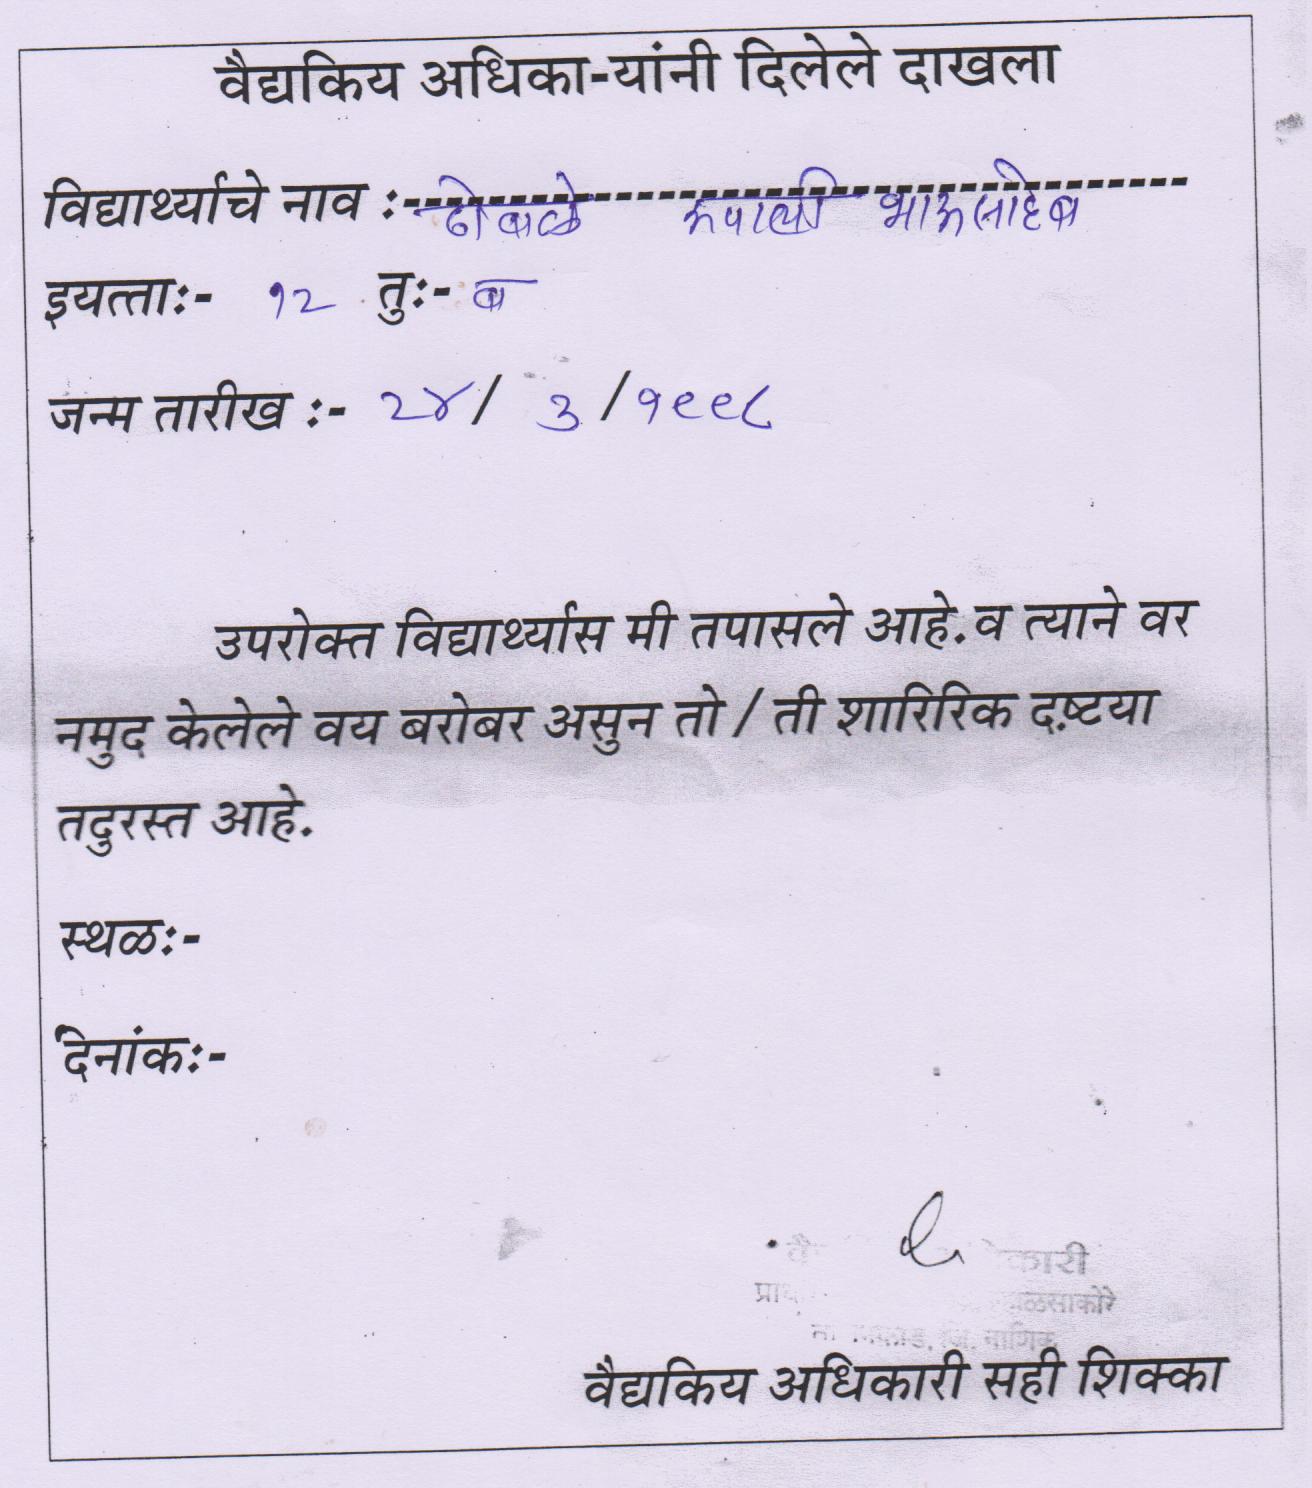 वैद्यकिय अधिका-यांनी दिलेले दाखला
विद्यार्थ्याचे नाव :- ढोबळे रुपाली भाऊसाहेब
इयत्ताः- १२ तुः- ब
जन्म तारीख :- २४/ ३ /१९९८
उपरोक्त विद्यार्थ्यास मी तपासले आहे. व त्याने वर
नमुद केलेले वय बरोबर असुन तो / ती शारिरिक दृष्टया
तदुरस्त आहे.
स्थळः-
दिनांकः-
कारी
जि. नाशिक
वैद्यकिय अधिकारी सही शिक्का